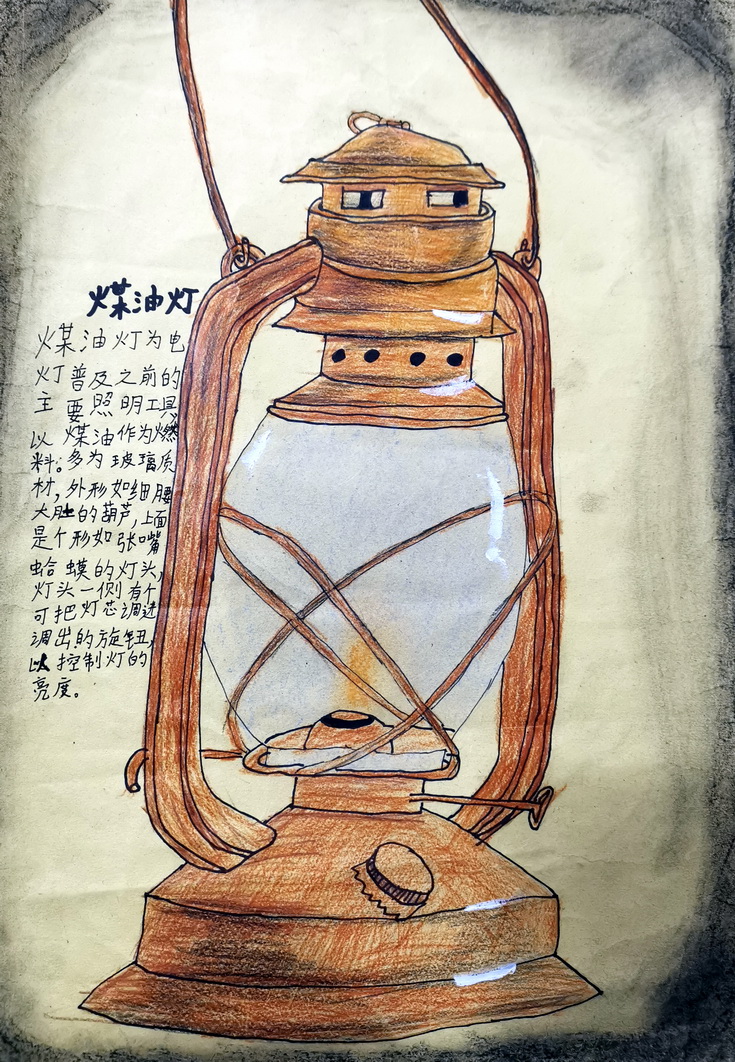 煤油灯
煤油灯为电
灯普及之前的
主要照明工具
以煤油作为燃
料。多为玻璃质
材，外形如细腰
大肚的葫芦，上面
是个形如张嘴
蛤蟆的灯头，
灯头一侧有个
可把灯芯调进
调出的旋钮，
以控制灯的
亮度。